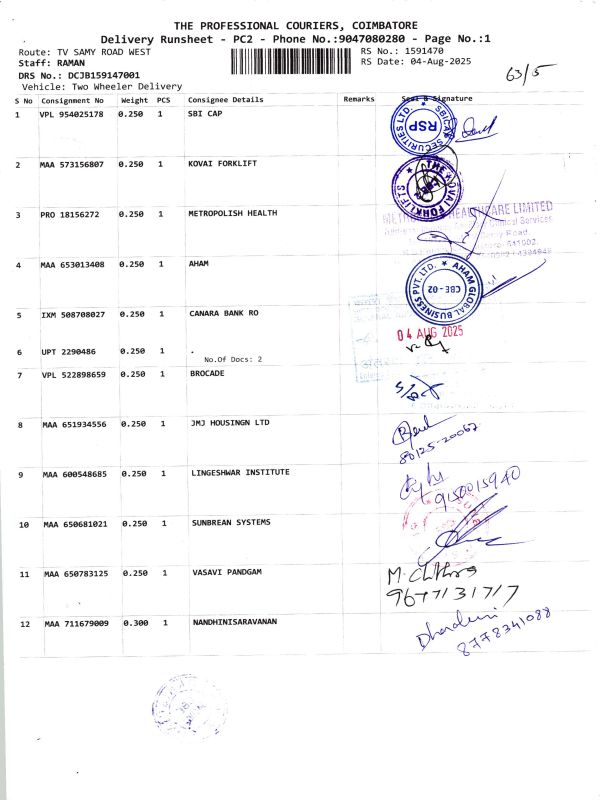 THE PROFESSIONAL COURIERS, COIMBATORE
Delivery Runsheet - PC2 - Phone No.:9047080280 - Page No.:1
Route: TV SAMY ROAD WEST RS No.: 1591470
Staff: RAMAN RS Date: 04-Aug-2025
DRS No.: DCJB159147001 63/5
Vehicle: Two Wheeler Delivery
S No Consignment No Weight PCS Consignee Details Remarks Seal & Signature
1 VPL 954025178 0.250 1 SBI CAP
SBICAP SECURITIES LTD. RSP
2 MAA 573156807 0.250 1 KOVAI FORKLIFT
THE KOVAI FORKLIFTS
3 PRO 18156272 0.250 1 METROPOLISH HEALTH
HEALTHCARE LIMITED
4 MAA 653013408 0.250 1 AHAM
AHAM GLOBAL BUSINESS PVT. LTD. CBE-02
5 IXM 508708027 0.250 1 CANARA BANK RO
04 AUG 2025
6 UPT 2290486 0.250 1 .
No.Of Docs: 2
7 VPL 522898659 0.250 1 BROCADE
8 MAA 651934556 0.250 1 JMJ HOUSINGN LTD
80125-20062
9 MAA 600548685 0.250 1 LINGESHWAR INSTITUTE
9150015940
10 MAA 650681021 0.250 1 SUNBREAN SYSTEMS
11 MAA 650783125 0.250 1 VASAVI PANDGAM
M. Chithra
9677131717
12 MAA 711679009 0.300 1 NANDHINISARAVANAN
8778341088